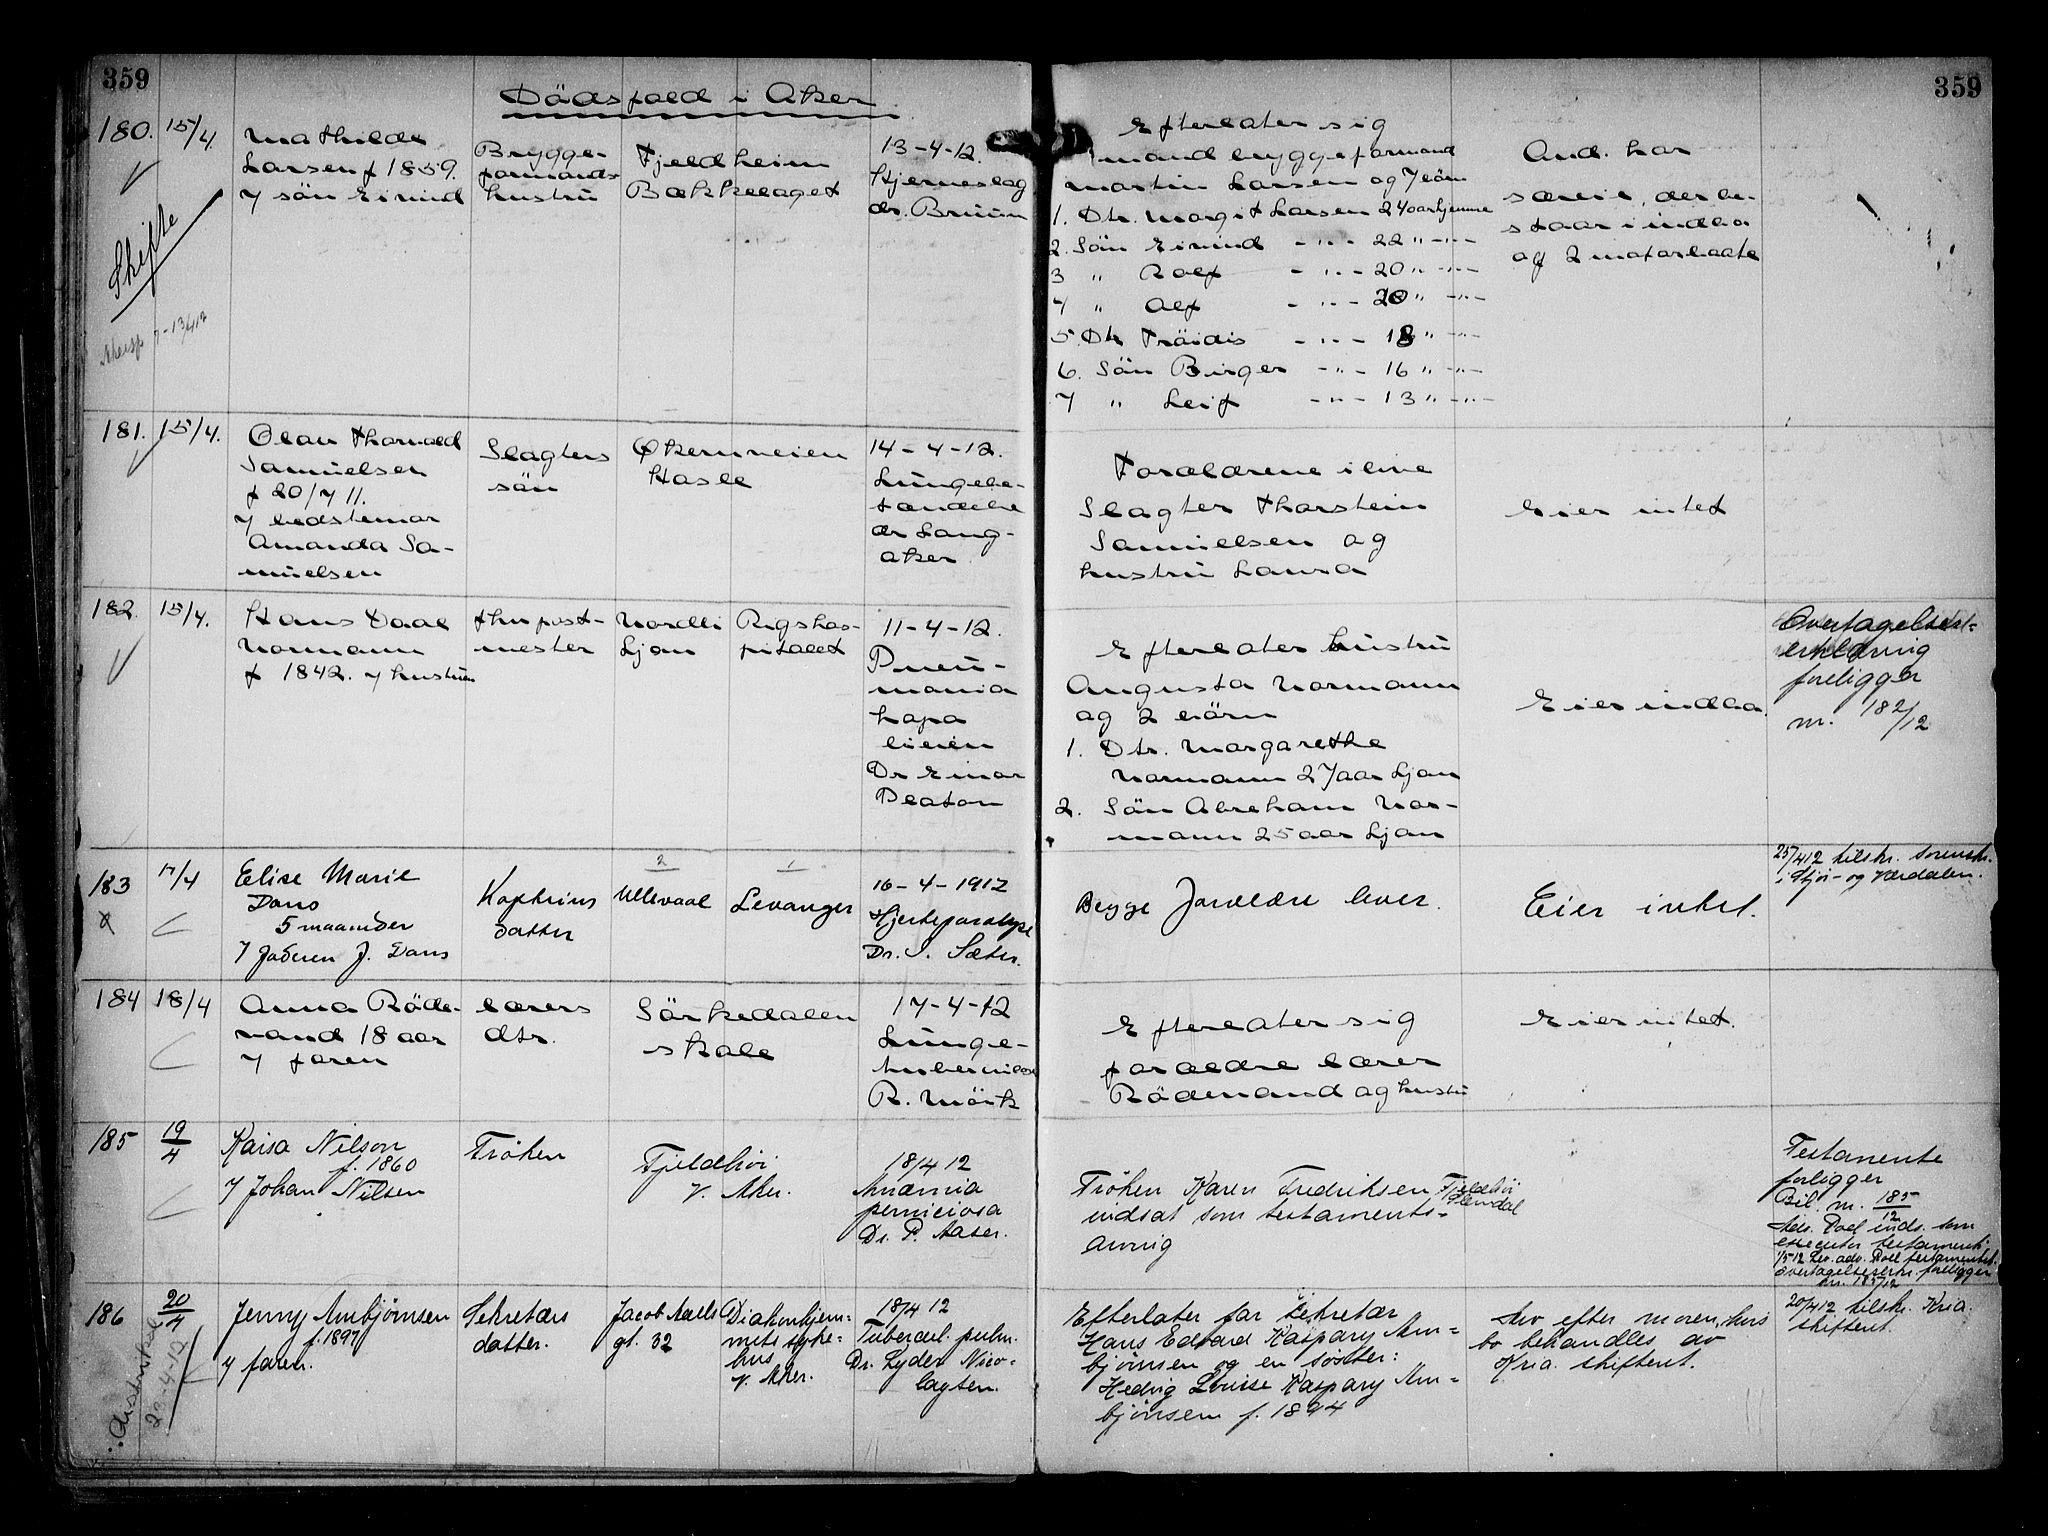 359
359
Dödsfald i Aker
180. 15/4.
Mathilde
Larsen f 1859.
/ sön Eivind
Brygge-
formands
hustru
Fjeldheim
Bækkelaget
13-4-12.
Hjerneslag
dr. Bruun
Efterlater sig
mand bryggeformand
Martin Larsen og 7 börn
1. Dtr. Margit Larsen 24 aar hjemme
2. Sön Eivind - " - 22 " - " -
3 " Rolf - " - 20 " - " -
4 " Alf - " - 20 " - " -
5. Dtr Fröidis - " - 18 " - " -
6. Sön Birger - " - 16 " - " -
7 " Leif - " - 13 " - " -
And. har
særeie, der be-
staar i indbo
og 2 motorbaate
Skifte
181. 15/4.
Olav Thorvald
Samuelsen
f 20/7 11.
/ bedstemor
Amanda Sa-
muelsen
Slagters
sön
Økernveien
Hasle
14-4-12.
Lungebe-
tændelse
dr Lang-
aker
Forældrene ilive
Slagter Thorstein
Samuelsen og
hustru Laura
Eier intet
182. 15/4.
Hans Daae
Normann
f 1842. / hustruen
fhv post-
mester
Nordli
Ljan
Rigshos-
pitalet
11-4-12.
Pneu-
monia
Dr Einar
Platou
Efterlater hustru
Augusta Normann
og 2 börn
1. Dtr. Margarethe
Normann 27 aar Ljan
2. Sön Abraham Nor-
mann 25 aar Ljan
Eier indbo.
Overtagelses-
erklæring
foreligger
nr. 182/12
183 17/4
Elise Marie
Dans
5 maaneder
/ Faderen J. Dans
Kapteins
datter
2
Ullevaal
1
Levanger
16-4-1912
Hjerteparalyse
Dr. S. Sæter.
Begge Forældre lever.
Eier intet.
25/4 12 tilskr. sorenskr.
i Stjør- og Værdalen.
184 18/4
Anna Röde-
vand 18 aar
/ faren
Lærers
dtr.
Sörkedalen
skole
17-4-12
Lunge-
tuberculose
R. Mörk
Efterlater sig
forældre lærer
Rödevand og hustru
Eier intet.
185 19/4
Kaisa Nilson
f. 1860
/ Johan Nilsen
Fröken
Fjeldhöi
V. Aker.
18/4 12
Anæmia
perniciosa
Dr. P. Aaser.
Fröken Karen Fredriksen, Fjeldhöi
indsat som testaments-
arving
Testamente
foreligger
Bil. nr. 185/12
Adv. Roll inds. som
executor testamenti.
overtagelseserkl. foreligger
nr. 185/12
186 20/4
Jenny Ambjørnsen
f. 1897
/ faren.
Sekretærs
datter.
Jacob Aalls
gt. 32
Diakonhjem-
mets syke-
hus
V. Aker.
18/4 12
Tubercul. pulm.
Dr. Lyder Nico-
laysen.
Efterlater far sekretær
Hans Edvard Kaspary Am-
bjørnsen og en søster:
Hedvig Louise Kaspary Am-
bjørnsen f. 1894
Arv efter moren, hvis
bo behandles av
Kria. skifteret.
20/4 12 tilskr. Kria.
skifteret.
20-4-12